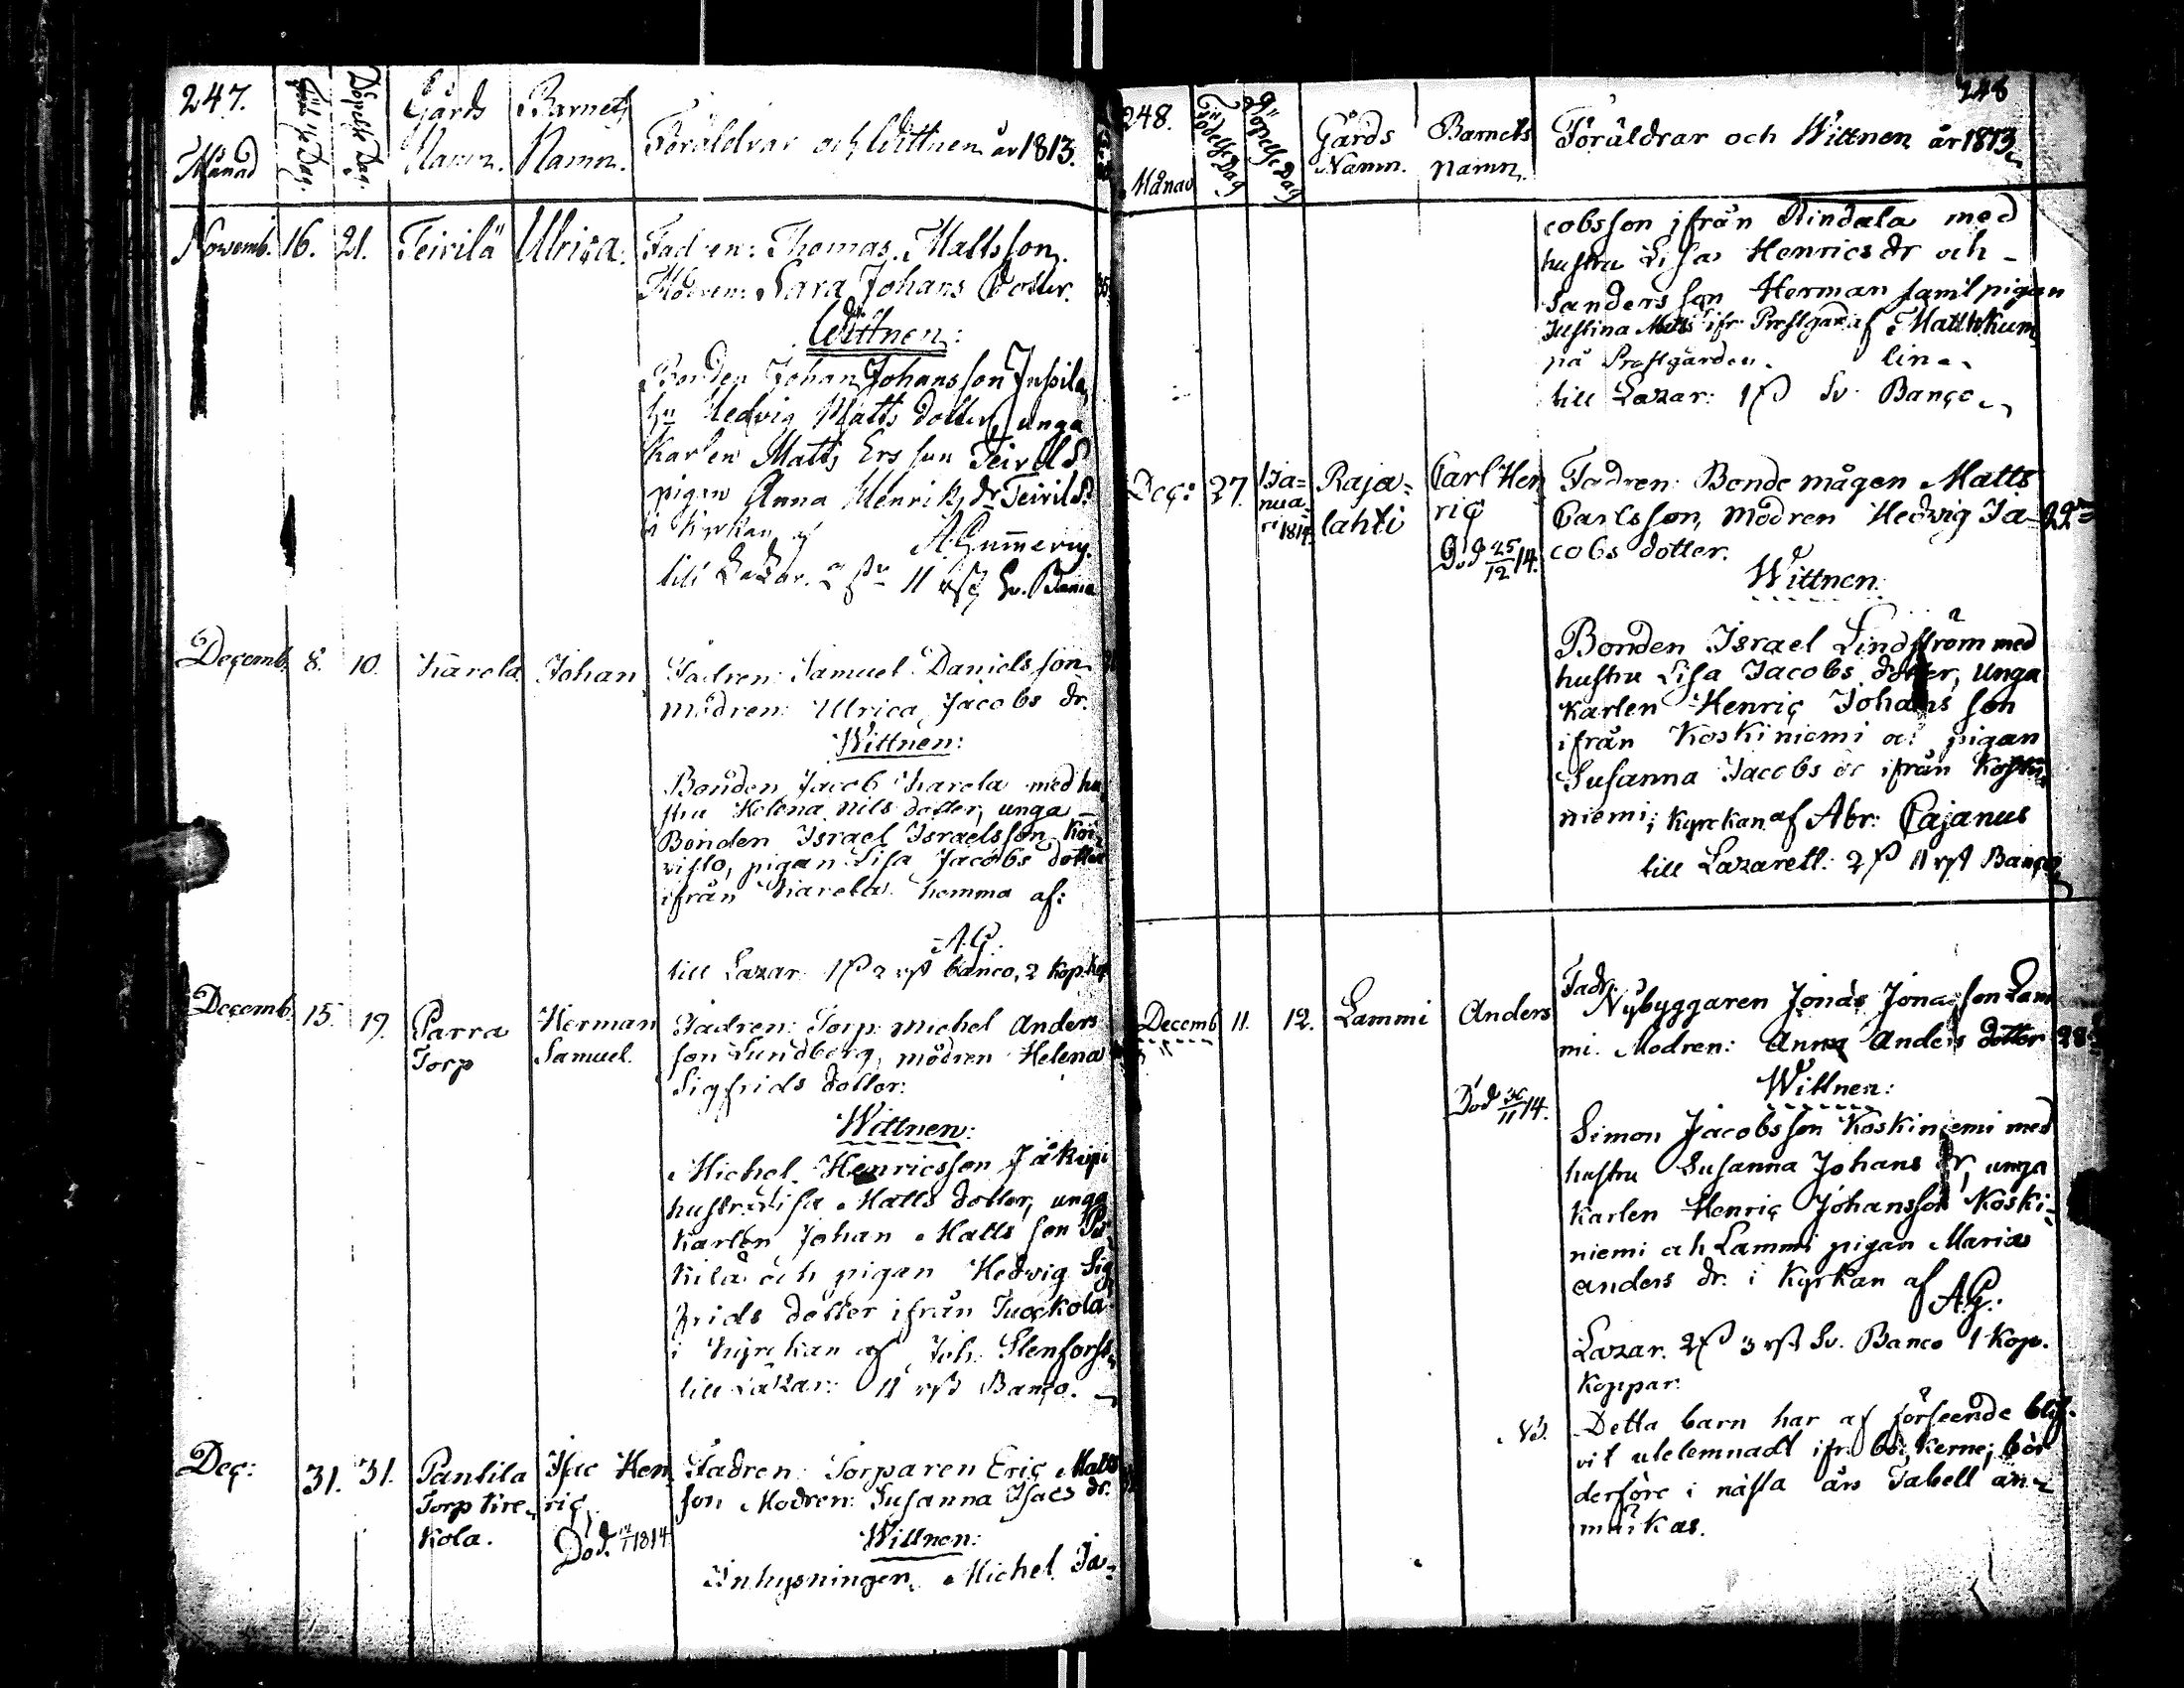 247.
Månad
Födelse Dag.
Döpelse Dag.
Gårds Namn.
Barnets Namn.
Föräldrar och Wittnen år 1813.
Novemb. 16. 21. Teirilä Ulrica. Fadren: Thomas Mattsson.
Modren: Sara Johans Dotter.
Wittnen:
Bonden Johan Johansson Jussila
hu Hedvig Matts dotter, unga
Karlen Matts Ersson Teirilä
pigan Anna Henriks dr Teirilä
i Kyrkan af A. Gummerus.
till Lazar. 11 rst Sv. Banco
Decemb. 8. 10. Karela Johan Fadren: Samuel Danielsson
modren: Ulrica Jacobs dr.
Wittnen:
Bonden Jacob Karela med hu
stru Helena Nils dotter, unga
Bonden Israel Israelsson Koi
visto, pigan Lisa Jacobs dotter
ifrån Karela hemma af:
A.G.
till Lazar: 1 sk 2 rst banco, 2 Kop. Kop
Decemb. 15. 19. Parra Herman Fadren: Torp: Michel Anders
Torp Samuel. son Lundberg, modren Helena
Sigfrids dotter:
Wittnen:
Michel Henricsson Jåkupi
hustru Lisa Matts dotter, unga
Karlen Johan Matts son På
kilä och pigan Hedvig Sig
frids dotter ifrån Tuockola
i Kyrckan af Joh. Elenforss
till Lazar: 11 rst Banco.
Dec: 31. 31. Pantila Isac Hen Fadren: Torparen Eric Matts
Torp Kire ric, son Modren: Susanna Isacs dr.
Kola. Död. 1814 Wittnen:
Inhysningen Michel Ja=
248.
248
Månad
Födelse Dag
Döpelse Dag
Gårds Namn.
Barnets Namn.
Föräldrar och Wittnen år 1813
cobsson ifrån Rindala med
hustru Lisa Henrics dr och
Sanders son Herman samt pigan
Justina Matts ifr Prestgår. af Matth Kum
på Prestgården. lin
till Lazar: 1 sk Sv. Banco
Dec: 27. Ja= Raja= Carl Hen Fadren: Bonde mågen Matts
nua lahti ric Carlsson, modren Hedvig Ja 29
ri 1814. Död 25/12 14. cobs dotter.
Wittnen:
Bonden Israel Lindström med
hustru Lisa Jacobs dotter, Unga
Karlen Henric Johans son
ifrån Koskiniemi och pigan
Susanna Jacobs dr ifrån Koski
niemi; i Kyrckan af Abr: Cajanus
till Lazarett: 2 sk 11 rst Banco
Decemb 11. 12. Lammi Anders Fadr. Nybyggaren Jonas Jonasson Lam
mi. Modren: Anna Anders dotter 28
Wittnen:
Död 30/11 14. Simon Jacobsson Koskiniemi med
hustru Susanna Johans dr, unga
Karlen Henric Johansson Koski
niemi och Lammi pigan Maria
anders dr. i Kyrkan af
A.G.
Lazar. 2 sk 3 rst Sv. Banco 1 Kop.
Koppar.
NB. Detta barn har af förseende blif=
vit utelemnadt ifr. böckerne; bör
derföre i nästa års Tabell an=
märkas.